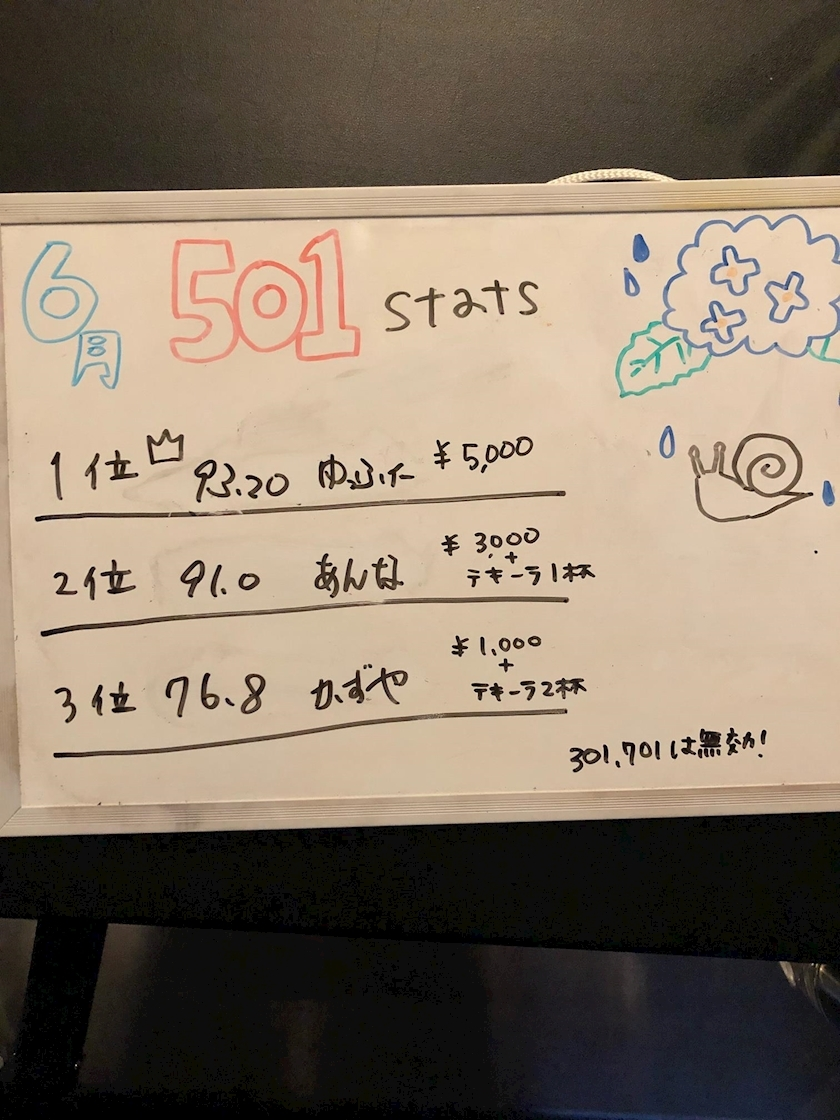 6月 501 stats
1位 93.20 ゆぶた ¥5,000
2位 91.0 あんな ¥3,000
+
テキーラ1杯
3位 76.8 かずや ¥1,000
+
テキーラ2杯
301,701は無効!